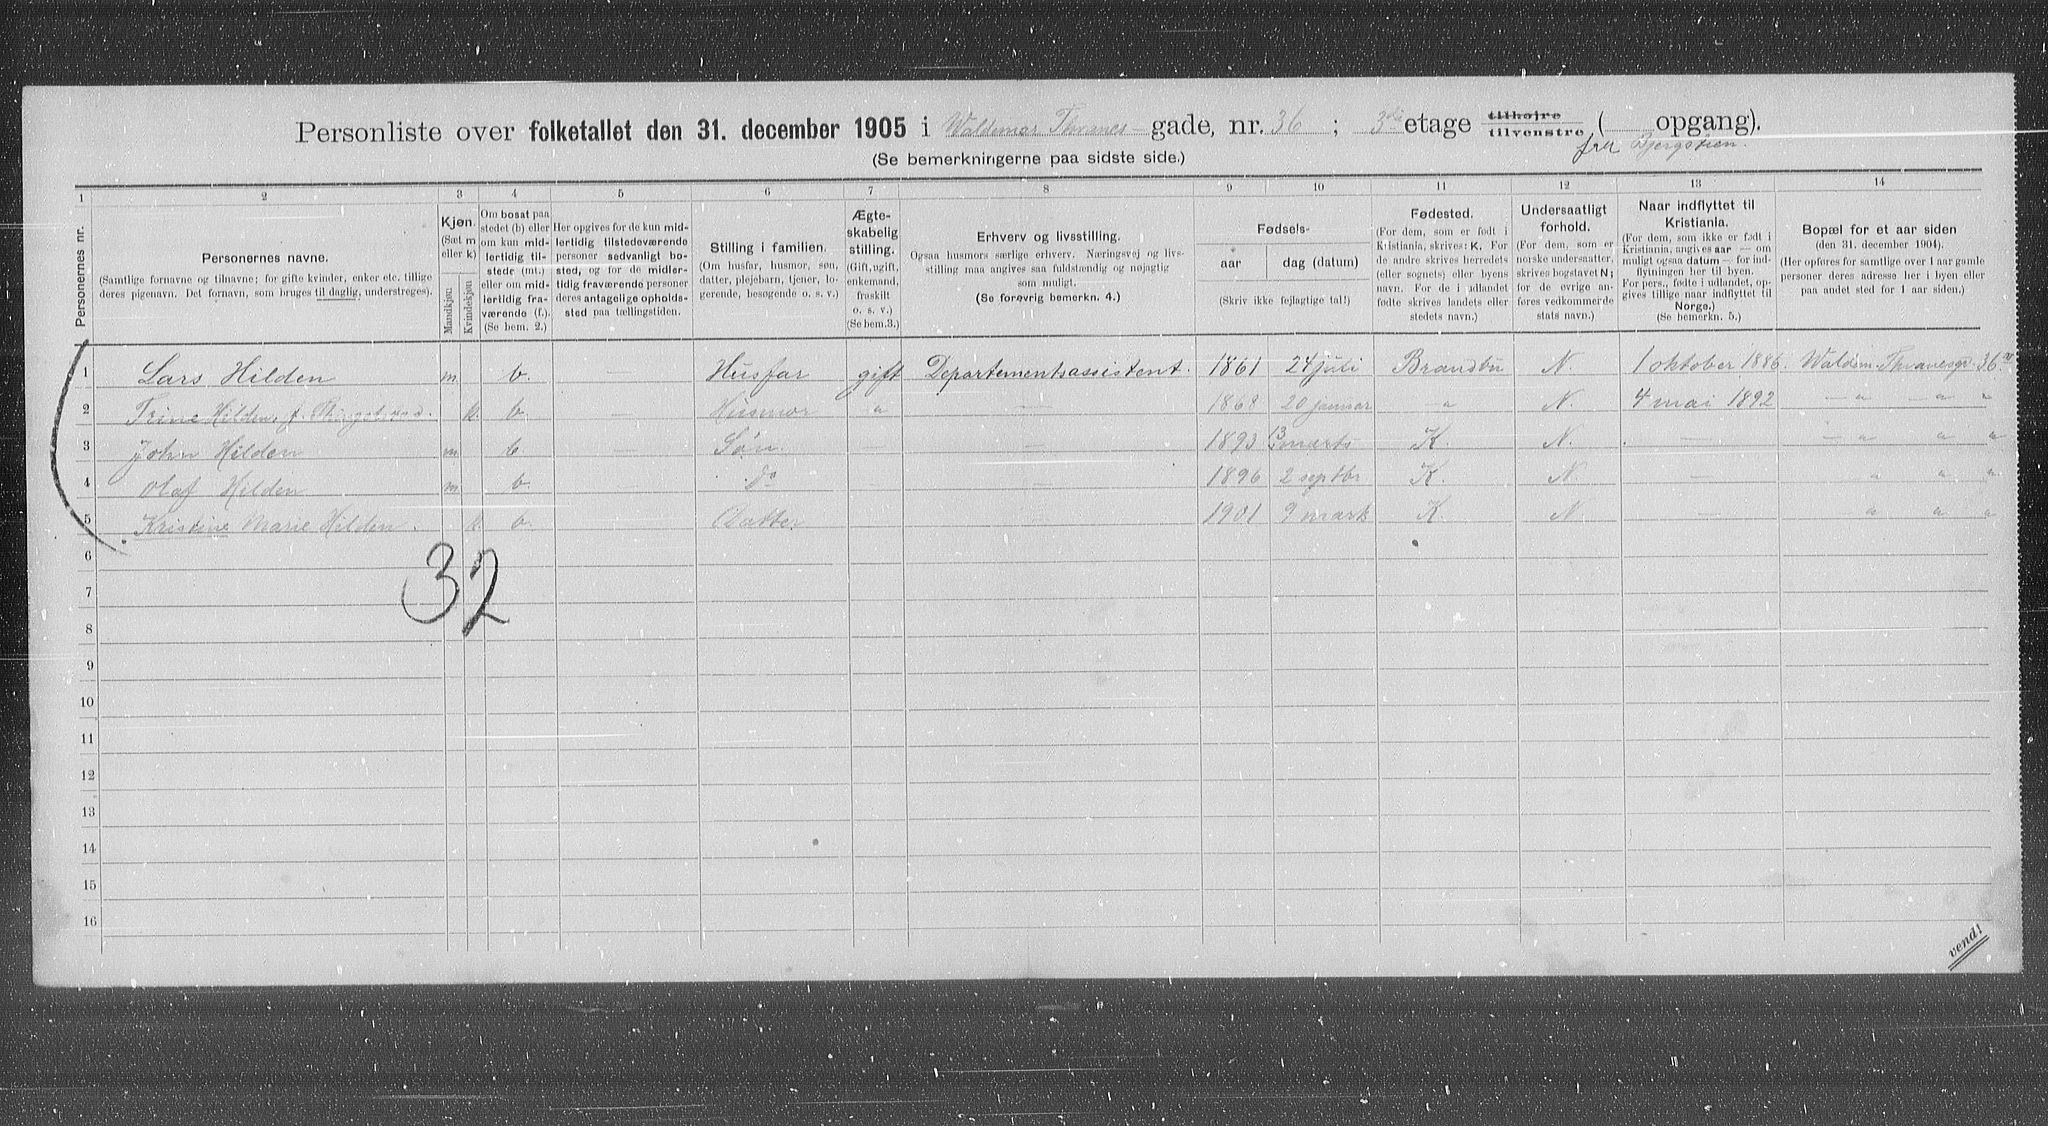 Personliste over folketallet den 31. december 1905 i Waldemar Thranes gade, nr. 36 ; 3die etage tilhøjre tilvenstre ( opgang).
fra Bjergstien.
(Se bemerkningerne paa sidste side.)
1 2 3 4 5 6 7 8 9 10 11 12 13 14
Personernes nr.
Personernes navne.
(Samtlige fornavne og tilnavne; for gifte kvinder, enker etc. tillige
deres pigenavn. Det fornavn, som bruges til daglig, understreges).
Kjøn.
(Sæt m
eller k)
Mandkjøn:
Kvindekjøn
Om bosat paa
stedet (b) eller
om kun mid-
lertidig til-
stede (mt.)
eller om mid-
lertidig fra-
værende (f.).
(Se bem. 2.)
Her opgives for de kun mid-
lertidig tilstedeværende
personer sedvanligt bo-
sted, og for de midler-
tidig fraværende personer
deres antagelige opholds-
sted paa tællingstiden.
Stilling i familien.
(Om husfar, husmor, søn,
datter, plejebarn, tjener, lo-
gerende, besøgende o. s. v.)
Ægte-
skabelig
stilling.
(Gift, ugift,
enkemand,
fraskilt
o. s. v.)
(Se bem.3.)
Erhverv og livsstilling.
Ogsaa husmors særlige erhverv. Næringsvej og livs-
stilling maa angives saa fuldstændig og nøjagtig
som muligt.
(Se forøvrig bemerkn. 4.)
Fødsels-
aar
dag (datum)
(Skriv ikke fejlagtige tal!)
Fødested.
(For dem, som er født i
Kristiania, skrives: K. For
de andre skrives herredets
(eller sognets) eller byens
navn. For de i udlandet
fødte skrives landets eller
stedets navn.)
Undersaatligt
forhold.
(For dem, som er
norske undersatter,
skrives bogstavet N;
for de øvrige an-
føres vedkommende
stats navn.)
Naar indflyttet til
Kristiania.
(For dem, som ikke er født i
Kristiania, angives aar — om
muligt ogsaa datum — for ind-
flytningen her til byen.
For pers., fødte i udlandet, op-
gives tillige naar indflyttet til
Norge.)
(Se bemerkn. 5.)
Bopæl for et aar siden
(den 31. december 1904).
(Her opføres for samtlige over 1 aar gamle
personer deres adresse her i byen eller
paa andet sted for 1 aar siden.)
1 Lars Hilden m b. — Husfar gift Departementsassistent. 1861 24 juli Brandbu N. 1 oktober 1886. Waldm. Thranesgd. 36.
2 Trine Hilden, f. Ringstad. k. b. — Husmor " — 1868 20 januar — " N. 4 mai 1892 — " — " "
3 John Hilden m b — Søn — — 1893 13 marts K. N. — — " " "
4 Olaf Hilden m b. do — 1896 2 septbr K. N — " " "
5 Kristine Marie Hilden. k. b. Datter 1901 9 mark K. N — " " "
32
6
7
8
9
10
11
12
13
14
15
16
vend!